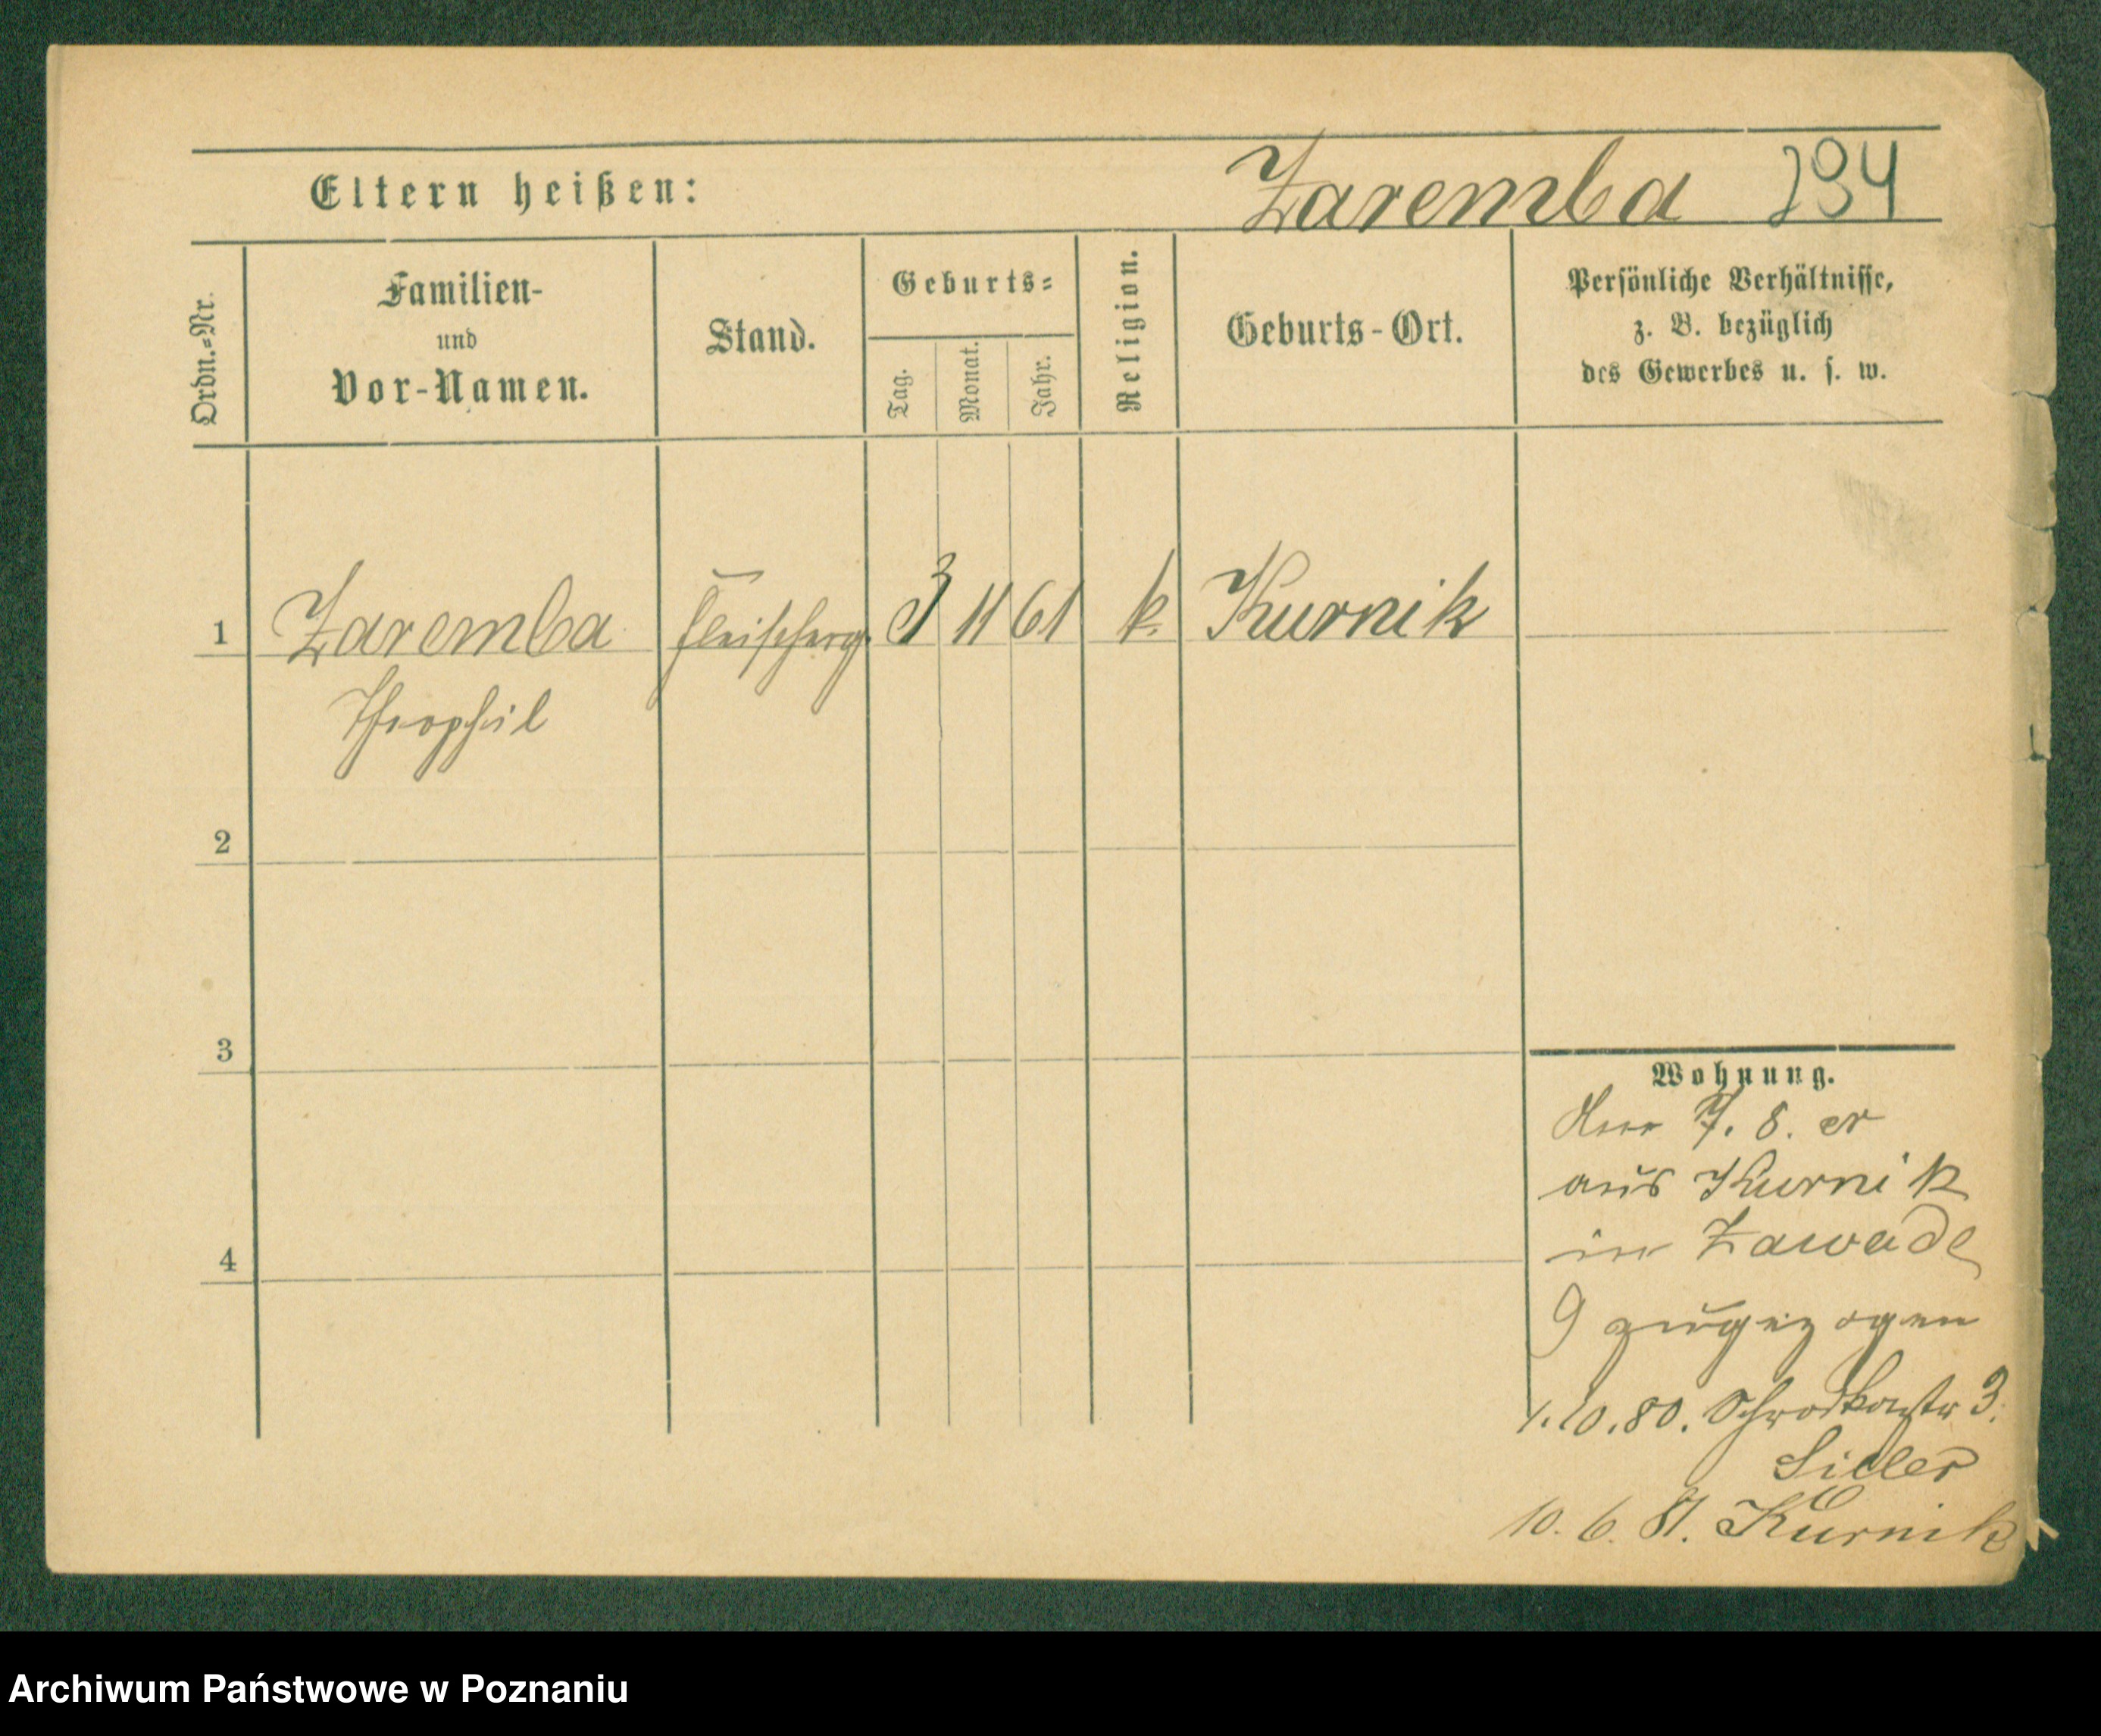 Eltern heißen: Zaremba 294
Ordn.-Nr.
Familien-
und
Vor-Namen.
Stand.
Geburts-
Tag.
Monat.
Jahr.
Religion.
Geburts-Ort.
Persönliche Verhältnisse,
z. B. bezüglich
des Gewerbes u. s. w.
1 Zaremba Fleischerg. 3 11 61 k. Kurnik
Theophil
2
3
4
Wohnung.
Den 7. 8. er
aus Kurnik
in Zawade
9 zugezogen
1.10.80. Schrodkastr 3.
Siller
10. 6. 81. Kurnik
Archiwum Państwowe w Poznaniu